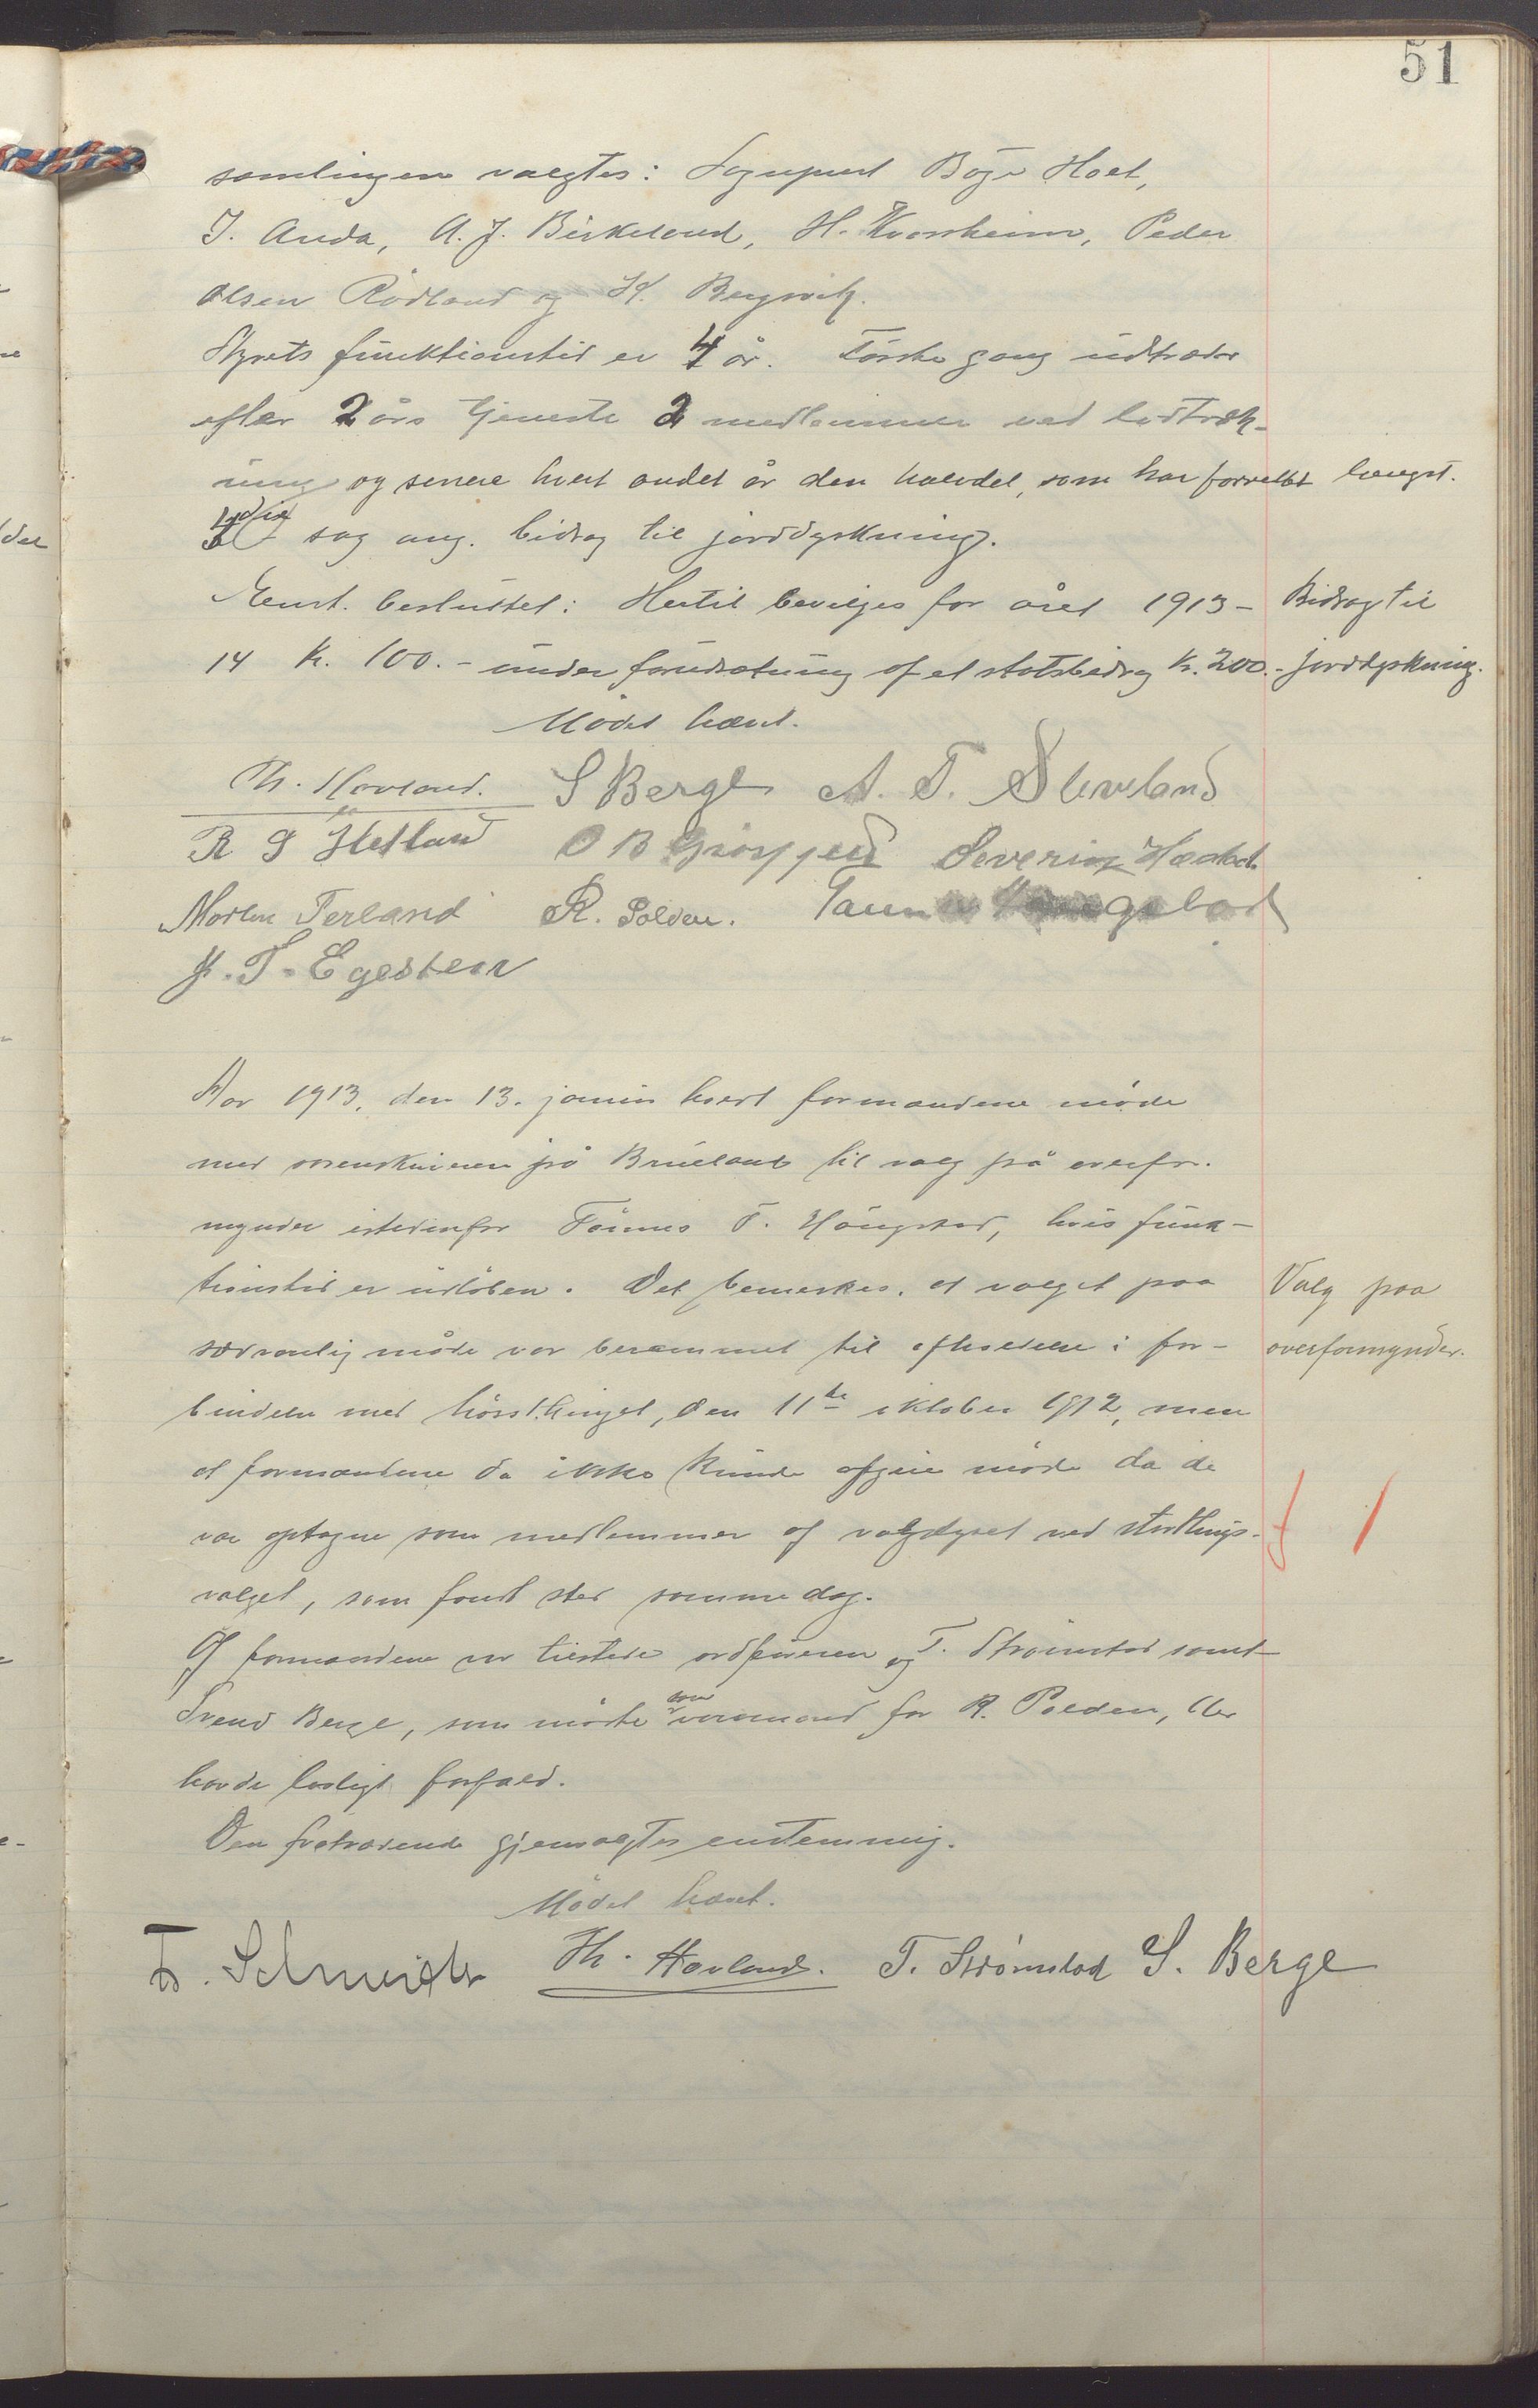 51
samlingen valgtes: Sogneprest Böge Hoel,
I. Anda, A. J. Birkeland, H. Kvassheim, Peder
Olsen Rödland og K. Bergvik.
Styrets funktionstid er 4 år. Förste gang udtræder
efter 2 års tjeneste 2 medlemmer ved lodtræk-
ning og senere hvert andet år den halvdel, som har forrettet længst.
sag ang. bidrag til jorddyrkning.
Enst. besluttet: Hertil bevilges for året 1913-
14 kr. 100.- under forudsætning af et statsbidrag kr. 200.-
Bidrag til
jorddyrkning.
Mödet hævet.
Th. Hovland. S Berge A. T. Sleveland
R S Hetland O B Severin Hæstad
Morten Terland R. Polden.
J. T. Egesten
Aar 1913, den 13. januar holdt formændene möde
med sorenskriveren på Brueland til valg på overfor-
mynder istedenfor Tönnes T. Höugstad, hvis funk-
tionstid er udlöben. Det bemerkes, at valget paa
sedvanlig måde var berammet til afholdelse i for-
bindelse med höstthinget, den 11te oktober 1912, men
at formændene da ikke kunde afgive möde da de
var optagne som medlemmer af valgstyret ved storthings-
valget, som fandt sted samme dag.
Valg paa
overformynder.
Af formændene var tilstede ordföreren og T. Strömstad samt
Svend Berge, som mödte som varamand for R. Polden, der
havde lovligt forfald.
Den fratrædende gjenvalgtes enstemmig.
Mödet hævet.
F. Schmidt Th. Hovland. T. Strømstad S. Berge